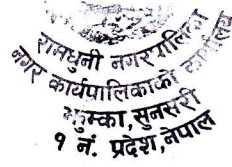 रामधुनी नगरपालिका
नगर कार्यपालिकाको कार्यालय
झुम्का, सुनसरी
१ नं. प्रदेश, नेपाल